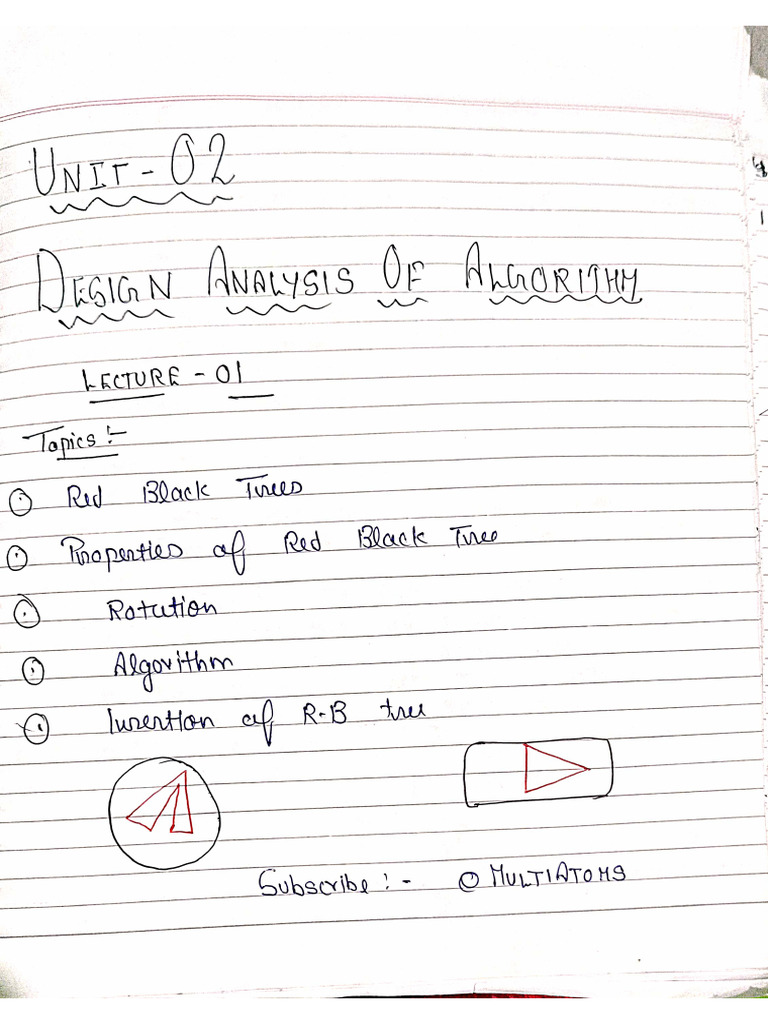 UNIT-02
DESIGN ANALYSIS OF ALGORITHM
LECTURE - 01
Topics :-
Red Black Trees
Properties of Red Black Tree
Rotation
Algorithm
Insertion of R-B tree
Subscribe :- @ MULTIATOMS